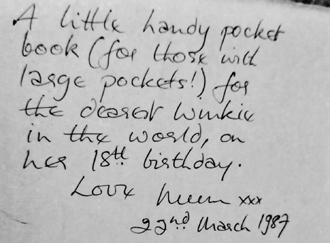 A little handy pocket
book (for those with
large pockets!) for
the dearest Winkie
in the world, on
her 18th birthday.
Love Mum xxx
22nd March 1987